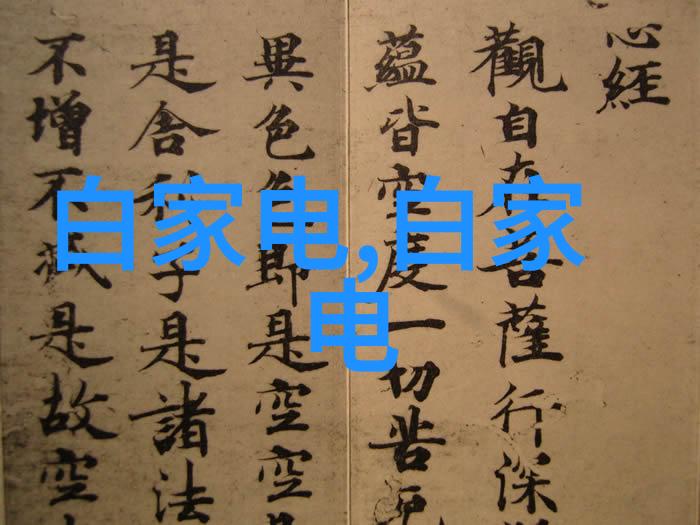 白家电,自家
电
心經
觀自在菩薩行深
蘊皆空度一切苦厄
異色色即是空空
是舍利子是諸法
不增不減是故空